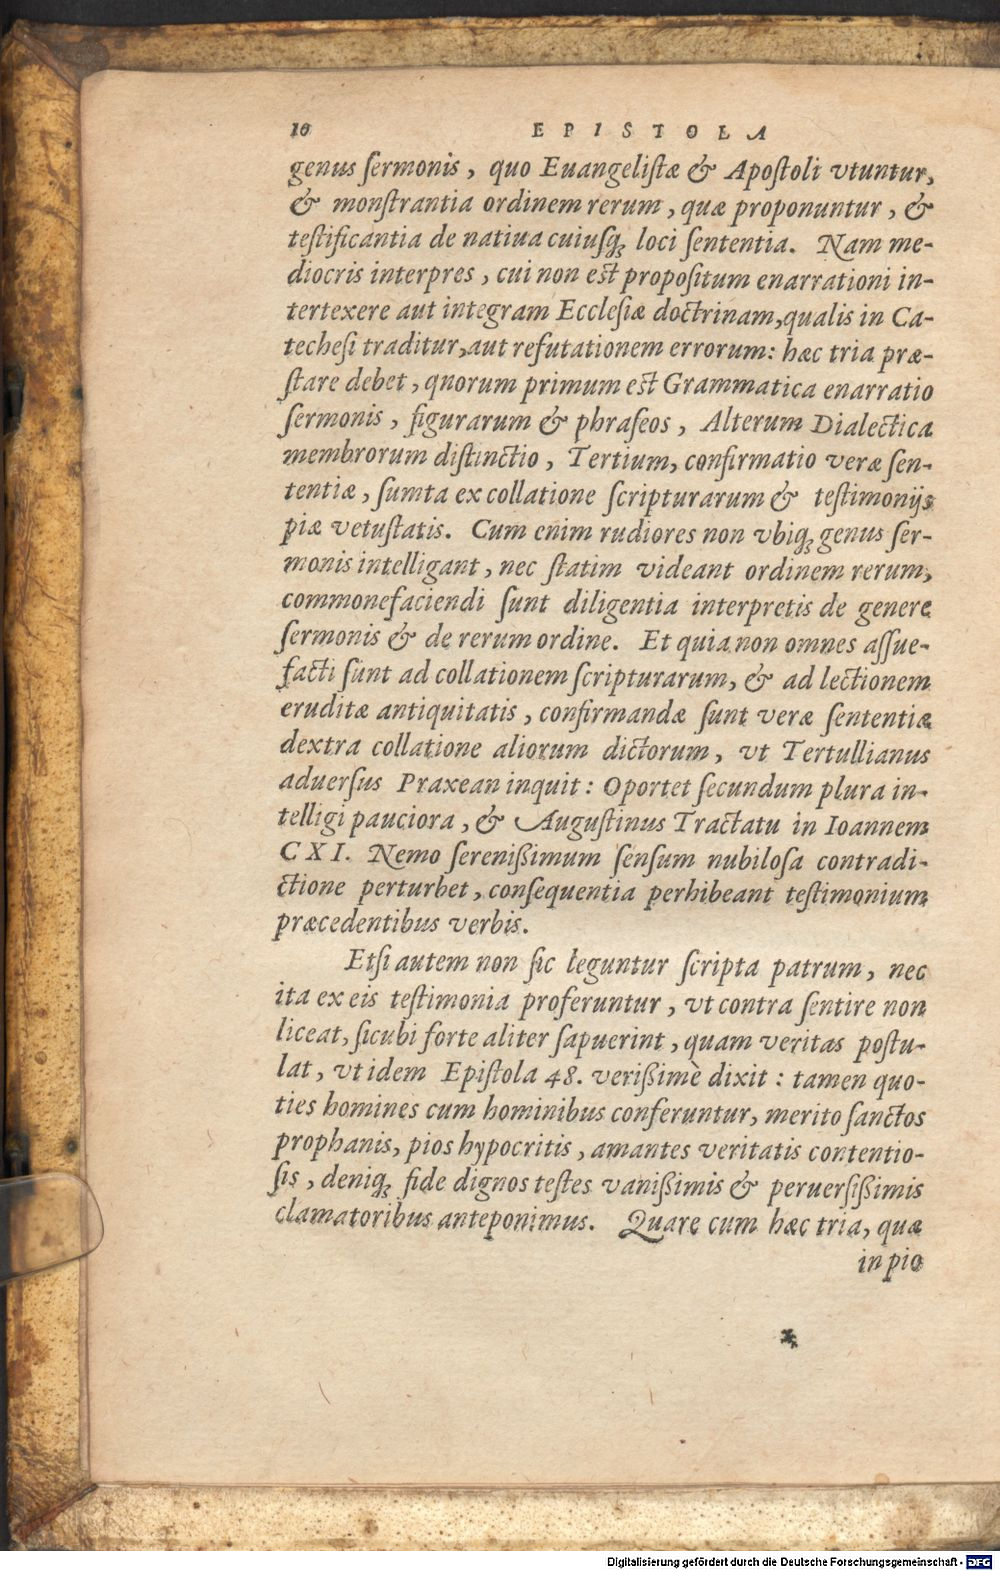 10 EPISTOLA
genus ſermonis, quo Euangeliſtæ & Apoſtoli vtuntur,
& monſtrantia ordinem rerum, quæ proponuntur, &
teſtificantia de natiua cuiuſq; loci ſententia. Nam me-
diocris interpres, cui non est propoſitum enarrationi in-
tertexere aut integram Eccleſiæ doctrinam, qualis in Ca-
techeſi traditur, aut refutationem errorum: hæc tria præ-
ſtare debet, qnorum primum est Grammatica enarratio
ſermonis, figurarum & phraſeos, Alterum Dialectica
membrorum diſtinctio, Tertium, confirmatio veræ ſen-
tentiæ, ſumta ex collatione ſcripturarum & teſtimonijs
piæ vetuſtatis. Cum enim rudiores non vbiq; genus ſer-
monis intelligant, nec ſtatim videant ordinem rerum,
commonefaciendi ſunt diligentia interpretis de genere
ſermonis & de rerum ordine. Et quia non omnes aſſue-
facti ſunt ad collationem ſcripturarum, & ad lectionem
eruditæ antiquitatis, confirmandæ ſunt veræ ſententiæ
dextra collatione aliorum dictorum, vt Tertullianus
aduerſus Praxean inquit: Oportet ſecundum plura in-
telligi pauciora, & Auguſtinus Tractatu in Ioannem
CXI. Nemo ſereniſsimum ſenſum nubiloſa contradi-
ctione perturbet, conſequentia perhibeant teſtimonium
præcedentibus verbis.
Etſi autem non ſic leguntur ſcripta patrum, nec
ita ex eis teſtimonia proferuntur, vt contra ſentire non
liceat, ſicubi forte aliter ſapuerint, quam veritas poſtu-
lat, vt idem Epiſtola 48. veriſsimè dixit: tamen quo-
ties homines cum hominibus conferuntur, merito ſanctos
prophanis, pios hypocritis, amantes veritatis contentio-
ſis, deniq; fide dignos teſtes vaniſsimis & peruerſiſsimis
clamatoribus anteponimus. Quare cum hæc tria, quæ
in pio
Digitalisierung gefördert durch die Deutsche Forschungsgemeinschaft - DFG